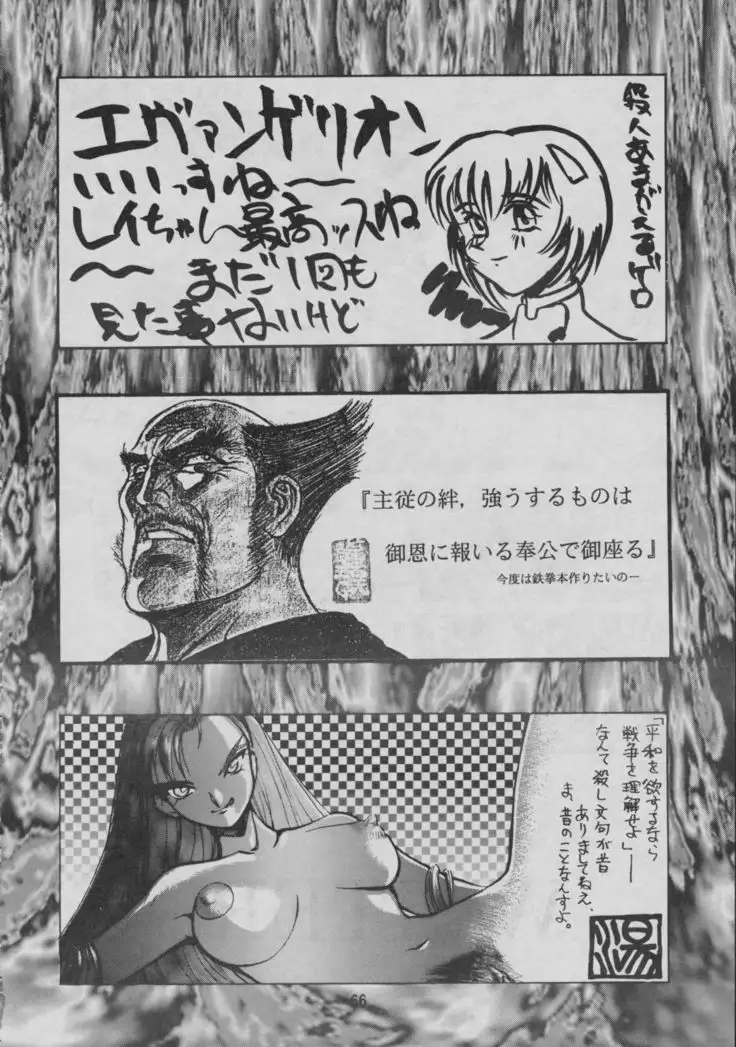 エヴァンゲリオン
いいっすね〜
レイちゃん最高ッスね
〜 まだ1回も
見た事ないけど
殺人あまがえるゲロ
『主従の絆，強うするものは
御恩に報いる奉公で御座る』
今度は鉄拳本作りたいのー
「平和を欲するなら
戦争を理解せよ」──
なんて殺し文句が昔
ありましてねえ、
ま、昔のことなんすよ。
湯
66